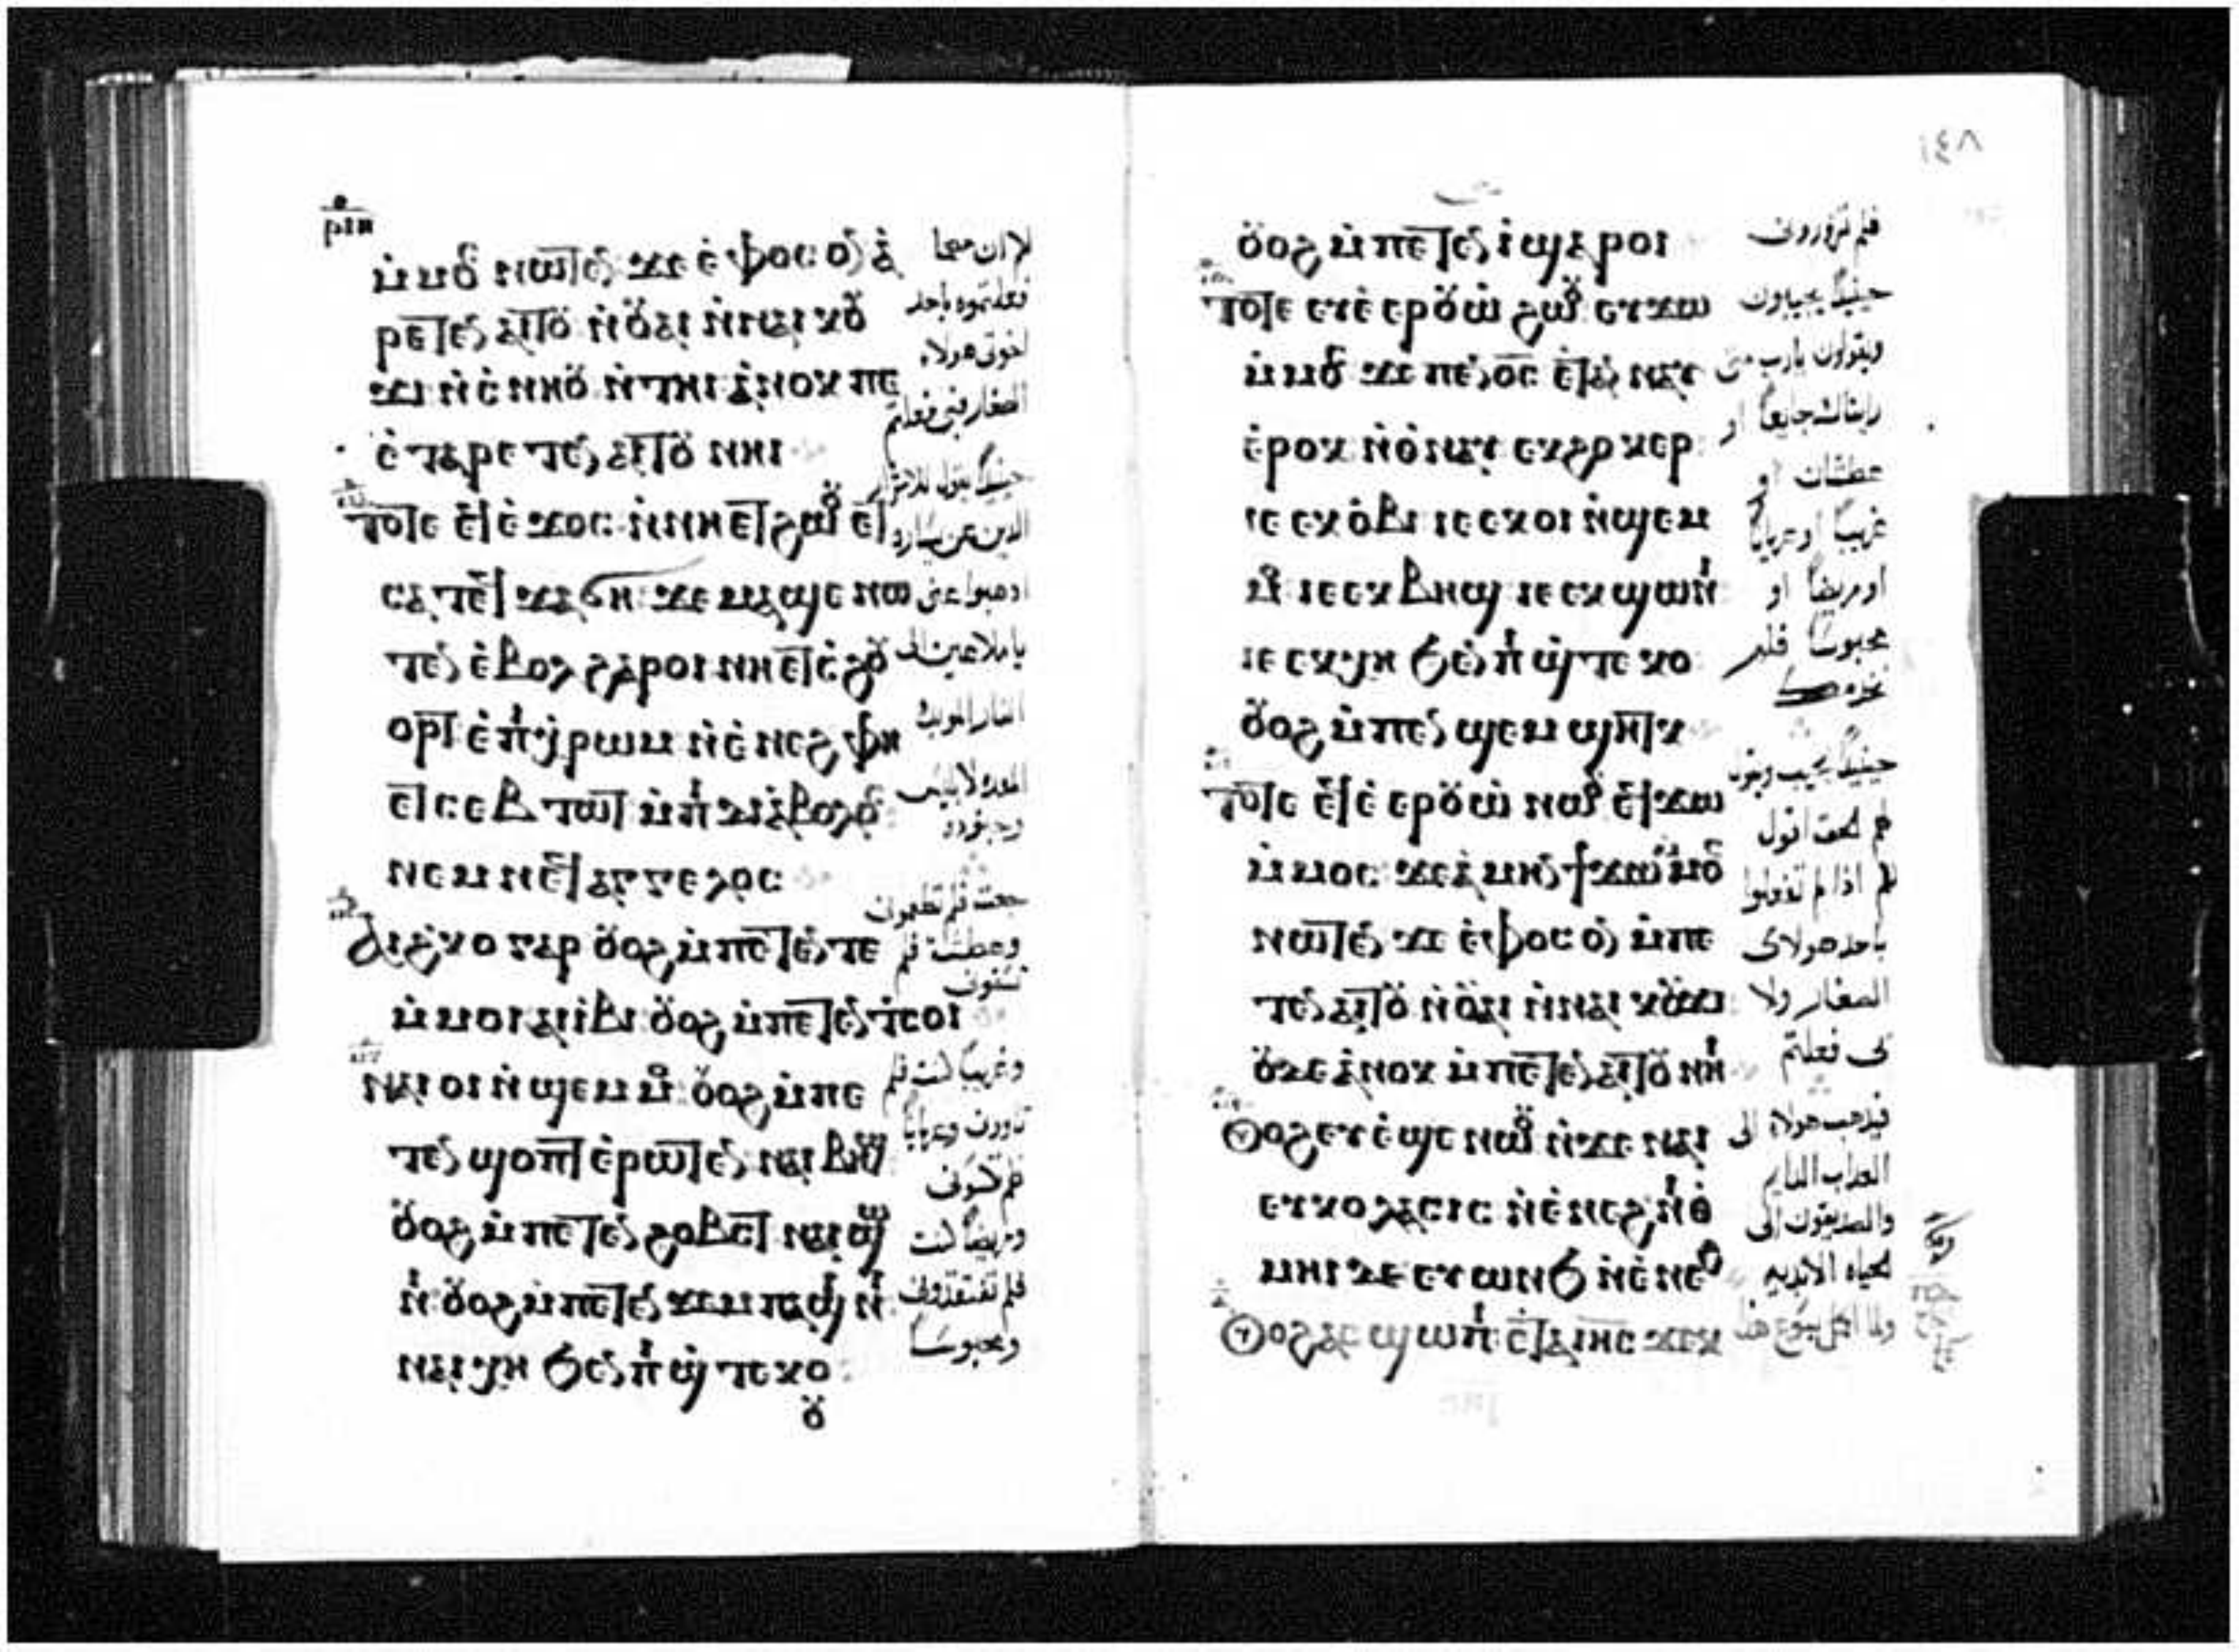 ⲣⲙⲏ
ⲙ̇ⲙⲟⲥ ⲛⲱⲧⲉⲛ ϫⲉ ⲉ̇ⲫⲟⲥⲟⲛ ⲁ̇
ⲣⲉⲧⲉⲛⲁⲓⲧⲟⲩ ⲛ̇ⲟⲩⲁⲓ ⲛ̇ⲛⲁⲓ ⲕⲟⲩ
ϫⲓ ⲛ̇ⲥ̇ⲛⲏⲟⲩ ⲛ̇ⲧⲏⲓ ⲁ̇ⲛⲟⲕ ⲡⲉ
ⲉ̇ⲧⲁⲣⲉⲧⲉⲛⲁⲓⲧⲟⲩ ⲛⲏⲓ
ⲧⲟⲧⲉ ⲉϥⲉ̇ϫⲟⲥ ⲛ̇ⲛⲏⲉⲧϩⲱⲟⲩ ⲉⲧ
ⲥⲁ ⲧⲉϥϫⲁϭⲏ ϫⲉ ⲙⲁϣⲉ ⲛⲱ
ⲧⲉⲛ ⲉ̇ⲃⲟⲗ ϩⲁⲣⲟⲓ ⲛⲏⲉⲧⲥ̇ϩⲟⲩ
ⲟⲣⲧ ⲉ̇ⲡⲓⲭ̇ⲣⲱⲙ ⲛ̇ⲉ̇ⲛⲉϩ ⲫⲏ
ⲉⲧⲥⲉⲃⲧⲱⲧ ⲙ̇ⲡⲓⲇⲓⲁ̇ⲃⲟⲗⲟⲥ
ⲛⲉⲙ ⲛⲉϥⲁⲅⲅⲉⲗⲟⲥ
ⲁⲓϩ̇ⲕⲟ ⲅⲁⲣ ⲟⲩⲟϩ ⲙ̇ⲡⲉⲧⲉⲛⲧⲉ
ⲙ̇ⲙⲟⲓ ⲁⲓⲓ̇ⲃⲓ ⲟⲩⲟϩ ⲙ̇ⲡⲉⲧⲉⲛⲧ̇ⲥⲟⲓ
ⲛⲁⲓⲟⲓ ⲛ̇ϣⲉⲙⲙⲟ ⲟⲩⲟϩ ⲙ̇ⲡⲉ
ⲧⲉⲛϣⲟⲡⲧ ⲉ̇ⲣⲱⲧⲉⲛ ⲛⲁⲓⲃⲏϣ
ⲟⲩⲟϩ ⲙ̇ⲡⲉⲧⲉⲛϩⲟⲃⲥⲧ ⲛⲁⲓϣⲱ
ⲛⲓ ⲟⲩⲟϩ ⲙ̇ⲡⲉⲧⲉⲛϫⲉⲙⲡⲁϣⲓⲛⲓ
ⲛⲁⲓⲭ̇ⲏ ϧⲉⲛ ⲡⲓϣ̇ⲧⲉⲕⲟ
ⲟⲩ
فعلتموه باحد
اخوتي هولاء
الصغار فبي فعلتم
حينيذًا يقول للاشرار
الذين عن يساره
اذهبوا عني
يا ملاعين الى
النار الموبده
المعده لابليس
وجنوده
جعت فلم تطعموني
وعطشت فلم
تسقوني
وغريبًا كنت فلم
تاووني وعريانًا
فلم تكسوني
ومريضًا كنت
فلم تفتقدوني
ومحبوسًا
١٤٨
ⲟⲩⲟϩ ⲙ̇ⲡⲉⲧⲉⲛⲓ̇ ϣⲁⲣⲟⲓ
ⲧⲟⲧⲉ ⲉⲩⲉ̇ⲉⲣⲟⲩⲱ̇ ϩⲱⲟⲩ ⲉⲩϫⲱ
ⲙ̇ⲙⲟⲥ ϫⲉ ⲡⲉⲛⲟ̅ⲥ ⲉ̇ⲧⲁⲛⲛⲁⲩ
ⲉ̇ⲣⲟⲕ ⲛ̇ⲑ̇ⲛⲁⲩ ⲉⲕϩⲟⲕⲉⲣ
ⲓⲉ ⲉⲕⲟ̇ⲃⲓ ⲓⲉ ⲉⲕⲟⲓ ⲛ̇ϣⲉⲙ
ⲙⲟ ⲓⲉ ⲉⲕⲃⲏϣ ⲓⲉ ⲉⲕϣⲱⲛⲓ
ⲓⲉ ⲉⲕⲭ̇ⲏ ϧⲉⲛ ⲡⲓϣ̇ⲧⲉⲕⲟ
ⲟⲩⲟϩ ⲙ̇ⲡⲉⲛϣⲉⲙϣⲏⲧⲕ
ⲧⲟⲧⲉ ⲉϥⲉ̇ⲉⲣⲟⲩⲱ̇ ⲛⲱⲟⲩ ⲉϥϫⲱ
ⲙ̇ⲙⲟⲥ ϫⲉ ⲁ̇ⲙⲏⲛ ϯϫⲱ ⲙ̇ⲙⲟⲥ
ⲛⲱⲧⲉⲛ ϫⲉ ⲉ̇ⲫⲟⲥⲟⲛ ⲙ̇ⲡⲉ
ⲧⲉⲛⲁⲓⲧⲟⲩ ⲛ̇ⲟⲩⲁⲓ ⲛ̇ⲛⲁⲓ ⲕⲟⲩϫⲓ
ⲟⲩⲇⲉ ⲁ̇ⲛⲟⲕ ⲙ̇ⲡⲉⲧⲉⲛⲁⲓⲧⲟⲩ ⲛⲏⲓ
ⲟⲩⲟϩ ⲉⲩⲉ̇ϣⲉ ⲛⲱⲟⲩ ⲛ̇ϫⲉ ⲛⲁⲓ
ⲉⲩⲕⲟⲗⲁⲥⲓⲥ ⲛ̇ⲉ̇ⲛⲉϩ ⲛⲓⲑ̇
ⲙⲏⲓ ⲇⲉ ⲉⲩⲱⲛϧ ⲛ̇ⲉ̇ⲛⲉϩ
ⲟⲩⲟϩ ⲁⲥϣⲱⲡⲓ ⲉ̇ⲧⲁ ⲓⲏ̅ⲥ ϫⲉⲕ
فلم تزوروني
حينيذًا يجيبون
ويقولون يارب متى
رايناك جايعًا او
عطشان او
غريبًا او عريانًا
او مريضًا او
محبوسًا فلم
حينيذًا يجيب ويقول
لهم الحق اقول
لكم اذا لم تفعلوا
باحد هولاي
الصغار ولا
لي فعلتم
فيذهب هولاء الى
العذاب الدايم
والصديقون الى
الحياه الابديه
ولما اكمل يسوع هذا